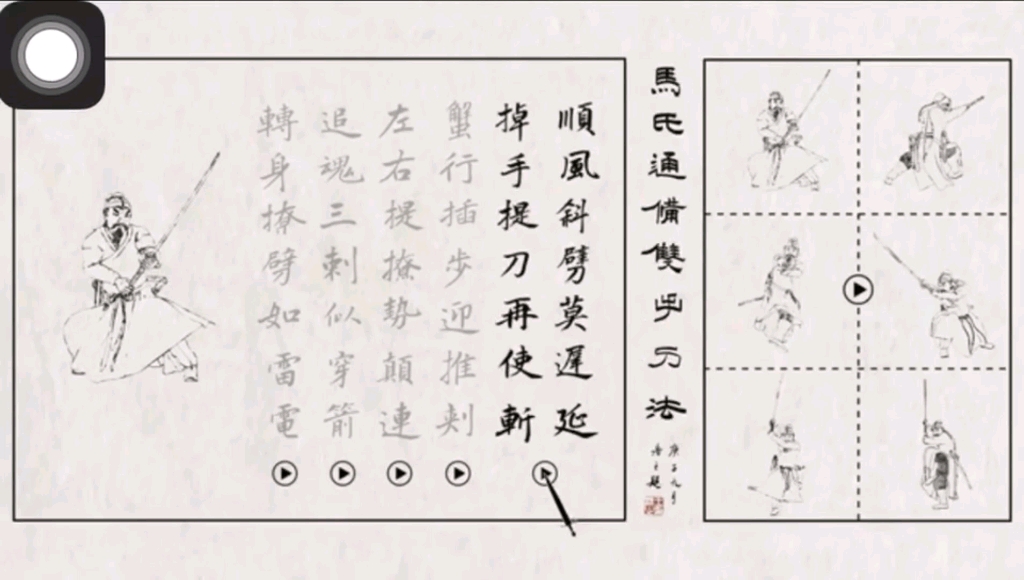 馬氏通備雙手刀法
庚子九月
順風斜劈莫遲延
掉手提刀再使斬
蟹行插步迎推刺
左右提撩勢顛連
追魂三刺似穿箭
轉身撩劈如雷電